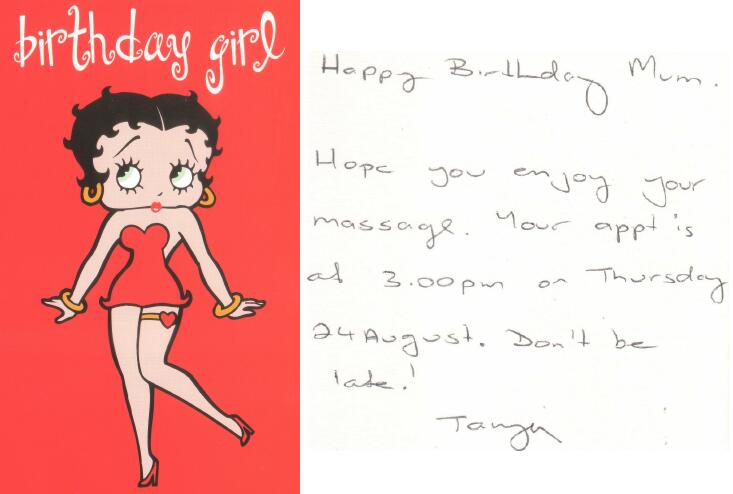 birthday girl
Happy Birthday Mum.
Hope you enjoy your
massage. Your appt is
at 3.00pm on Thursday
24 August. Don't be
late!
Tanya